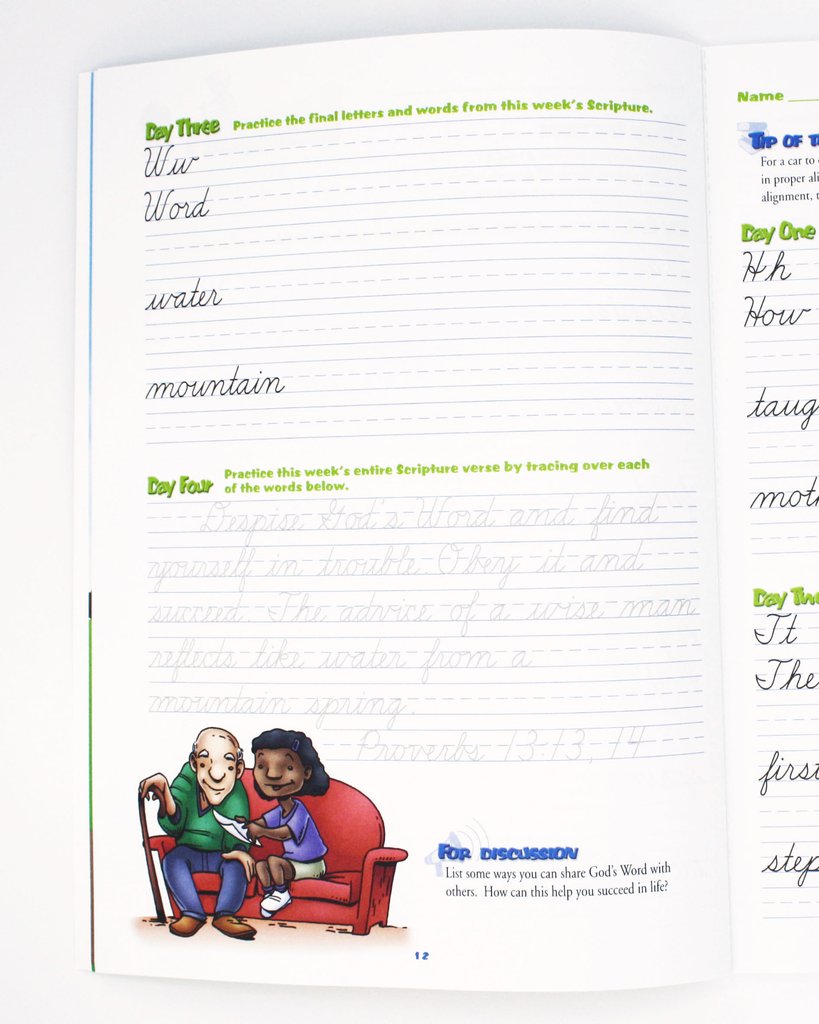 Day Three Practice the final letters and words from this week's Scripture.
Ww
Word
water
mountain
Day Four Practice this week's entire Scripture verse by tracing over each
of the words below.
Despise God's Word and find
yourself in trouble. Obey it and
succeed. The advice of a wise man
reflects like water from a
mountain spring.
Proverbs 13:13, 14
FOR DISCUSSION
List some ways you can share God's Word with
others. How can this help you succeed in life?
12
Name
TIP OF
For a car to
in proper
alignment,
Day One
Hh
How
Day Two
It
The
first
step